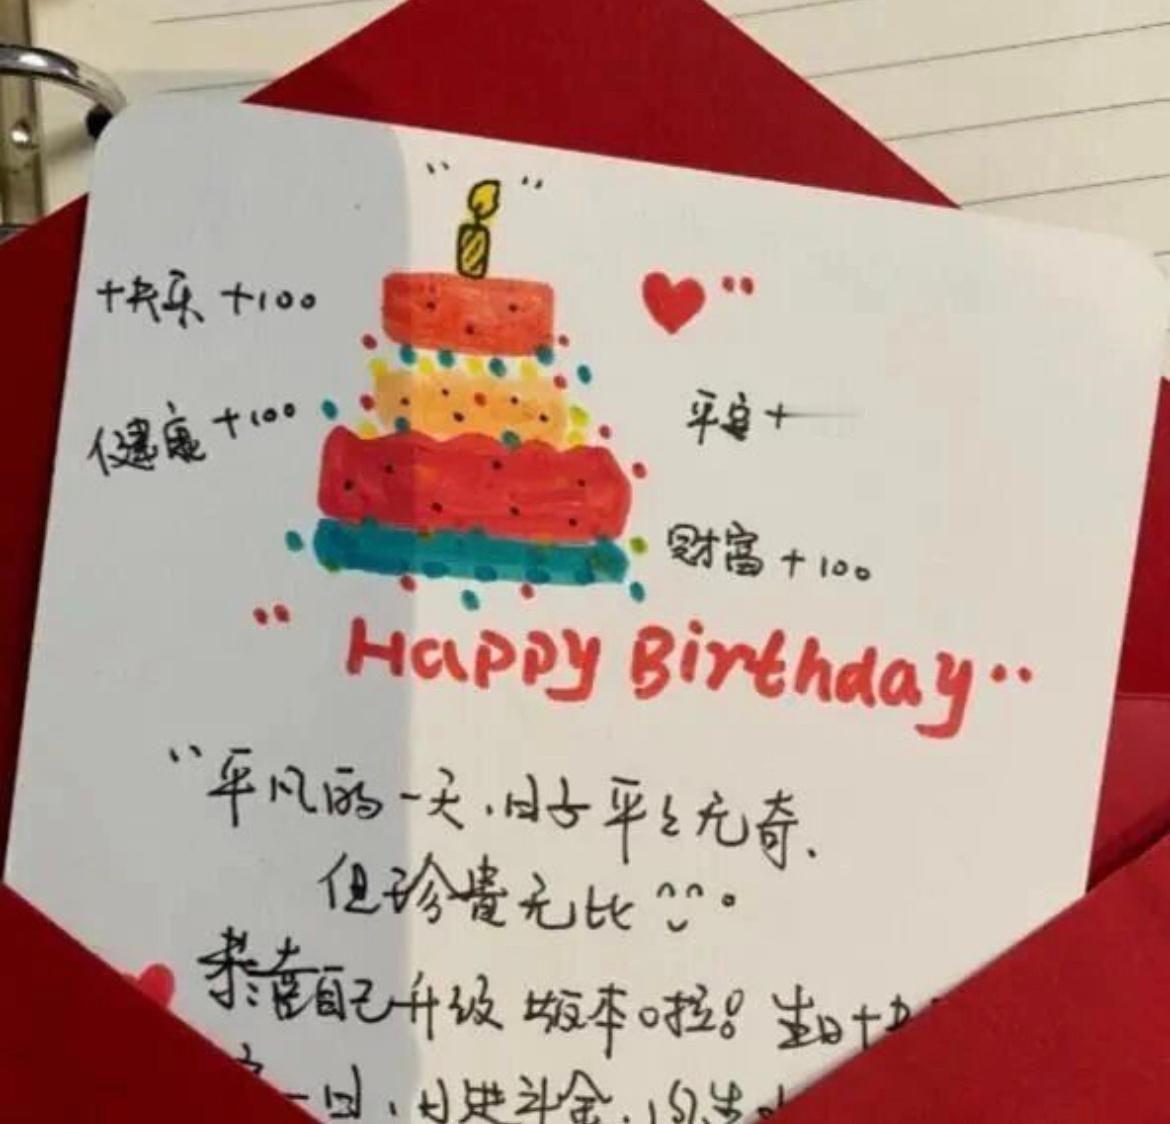 快乐 +100
健康 +100
平安 +
财富 +100
Happy Birthday
"平凡的一天、日子平平无奇、
但珍贵无比
恭喜自己升级版本啦! 生日快
一日、日进斗金、